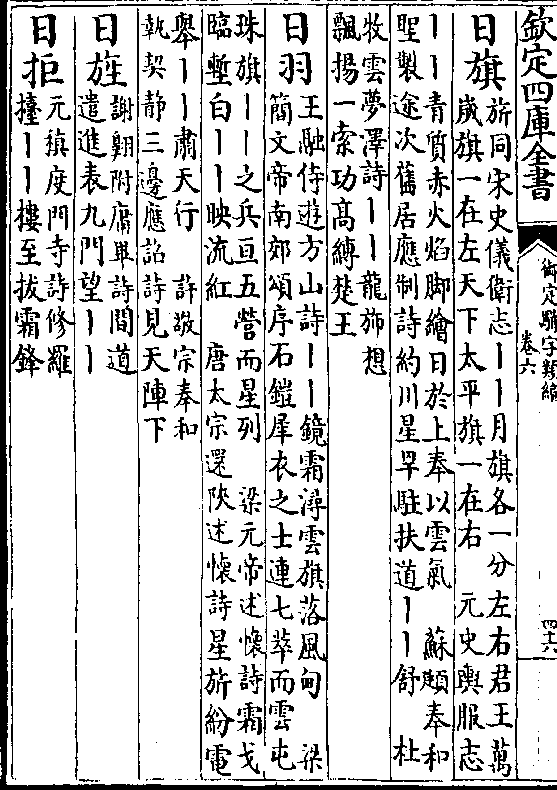 欽定四庫全書
御定駢字類編
卷六
四十六
日旗
旂同宋史儀衛志丨丨月旗各一分左右君王萬
歲旗一在左天下太平旗一在右 元史輿服志
丨丨青質赤火焰脚繪日於上奉以雲氣 蘇頲奉和
聖製途次舊居應制詩約川星罕駐扶道丨丨舒 杜
牧雲夢澤詩丨丨龍斾想
飄揚一索功高縛楚王
日羽
王融侍遊方山詩丨丨鏡霜潯雲旗落風甸 梁
簡文帝南郊頌序石鎧犀衣之士連七萃而雲屯
珠旗丨丨之兵亘五營而星列 梁元帝述懷詩霜戈
臨塹白丨丨映流紅 唐太宗還陜述懷詩星旂紛電
舉丨丨肅天行 許敬宗奉和
執契静三邊應詔詩見天陣下
日旌
謝翺附庸畢詩間道
遣進表九門望丨丨
日拒
元稹度門寺詩修羅
擡丨丨樓至拔霜鋒